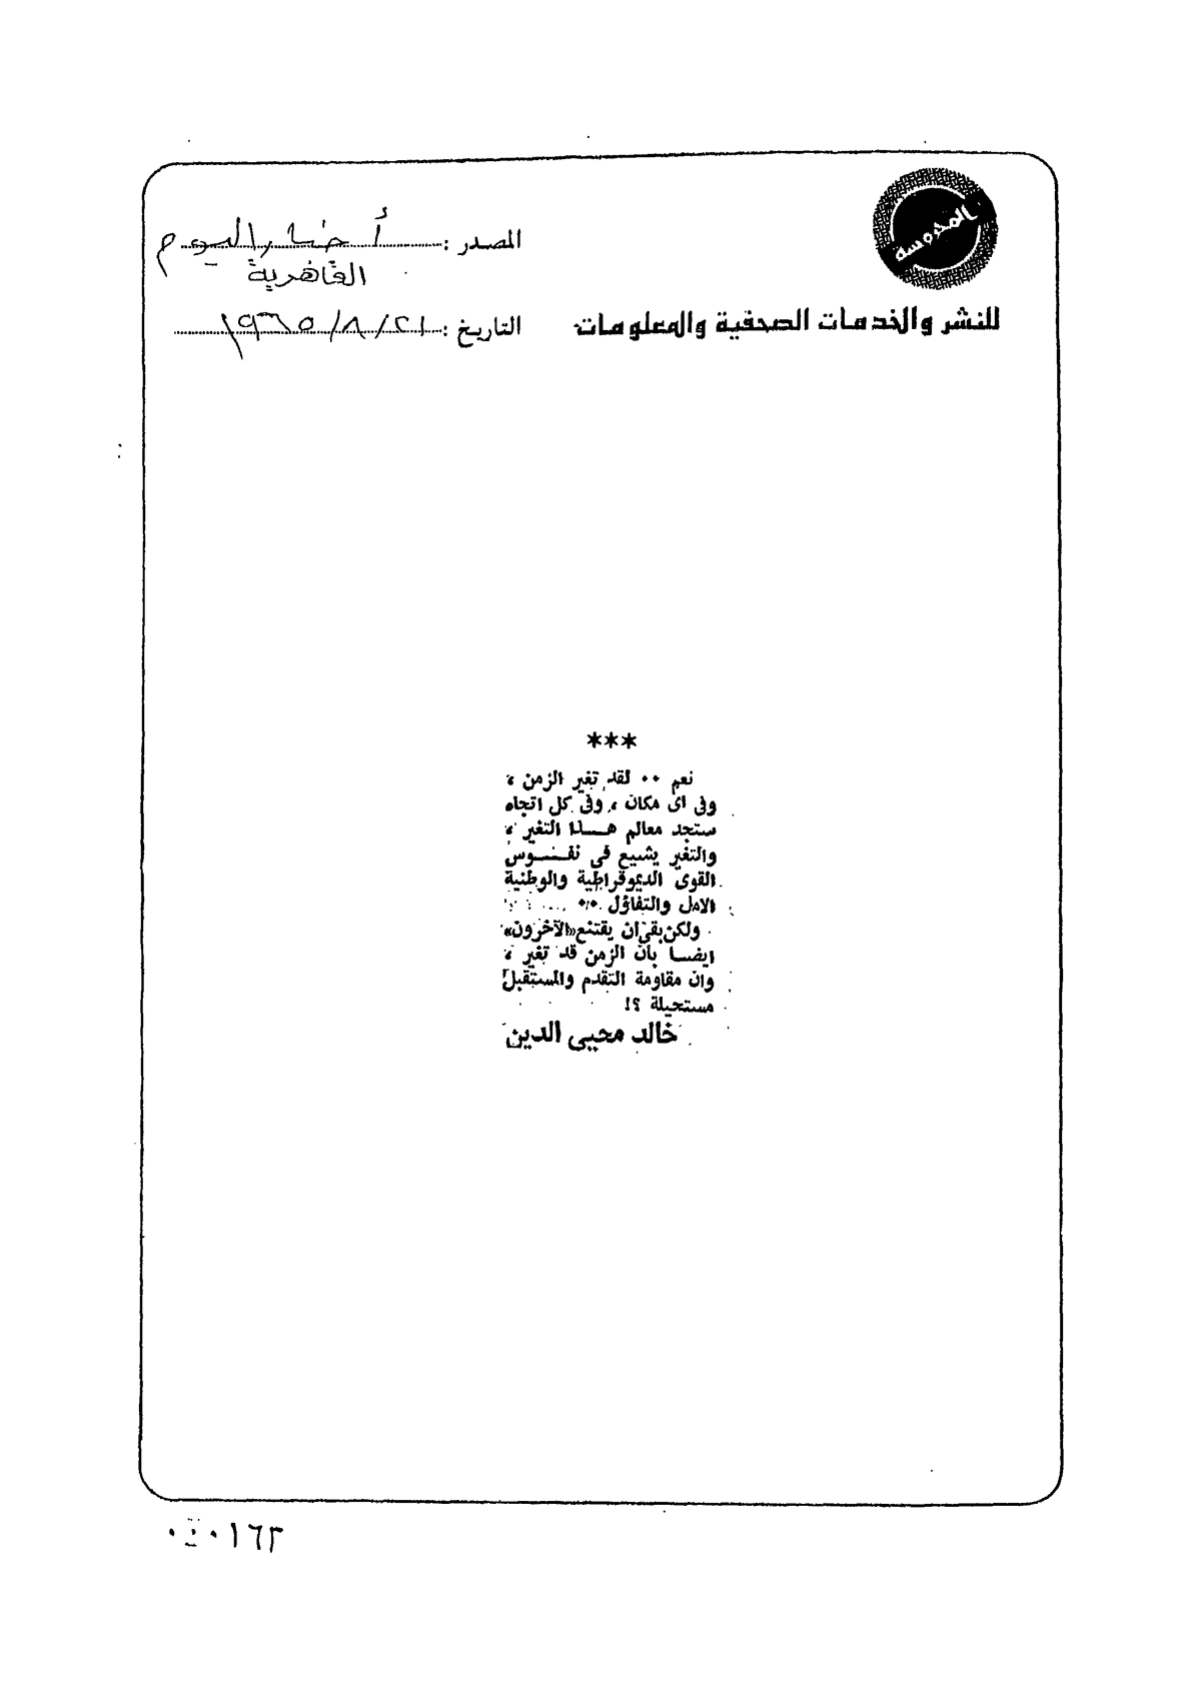 المحروسة
للنشر والخدمات الصحفية والمعلومات
المصدر : أخبار اليوم
القاهرية
التاريخ : ٢١ / ٨ / ١٩٦٥
***
نعم ٠٠ لقد تغير الزمن ،
وفى اى مكان ، وفى كل اتجاه
ستجد معالم هــذا التغير ،
والتغير يشيع فى نفــوس
القوى الديموقراطية والوطنية
الامل والتفاؤل ٠٠
ولكن بقى ان يقتنع «الآخرون»
ايضــا بأن الزمن قد تغير ،
وان مقاومة التقدم والمستقبل
مستحيلة ؟!
خالد محيى الدين